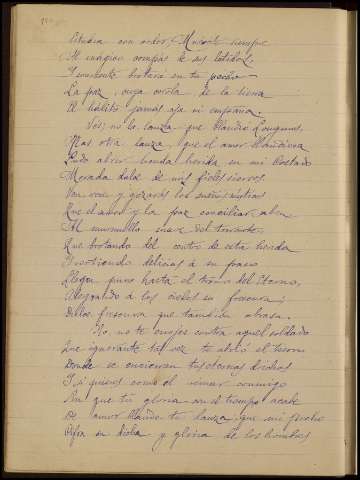 Estudia con ardor; Muévate siempre
Al mágico compás de sus latidos,
Y brotará en tu pecho
La paz, cuya corola de la tierra
El hálito jamás aja ni empaña.
No la lanza que blandió Longinos,
Mas otra lanza, que el amor blandiera
Pudo abrir honda herida en mi Costado
Morada dulce de mis fieles siervos
Ven y gozarás los
Que el amor y la paz concilian
Al murmullo suave del torrente
Que brotando del centro de esta herida
Y vertiendo delicias á su paso
Llega puro hasta el trono del Eterno,
Alegrando á los cielos su frescura;
Dulce frescura que también abrasa.
No te enojes contra aquel soldado
Que ignorante tal vez te abrió el tesoro
Donde se encierran tus eternas dichas
Y si quieres como él reinar conmigo
Sin que tu gloria en el tiempo acabe
De amor blande tu lanza, que mi pecho
Cifra su dicha y gloria de los hombres